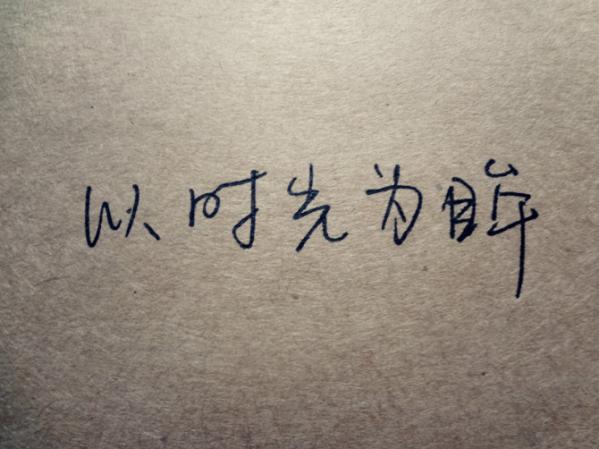 以时光为眸